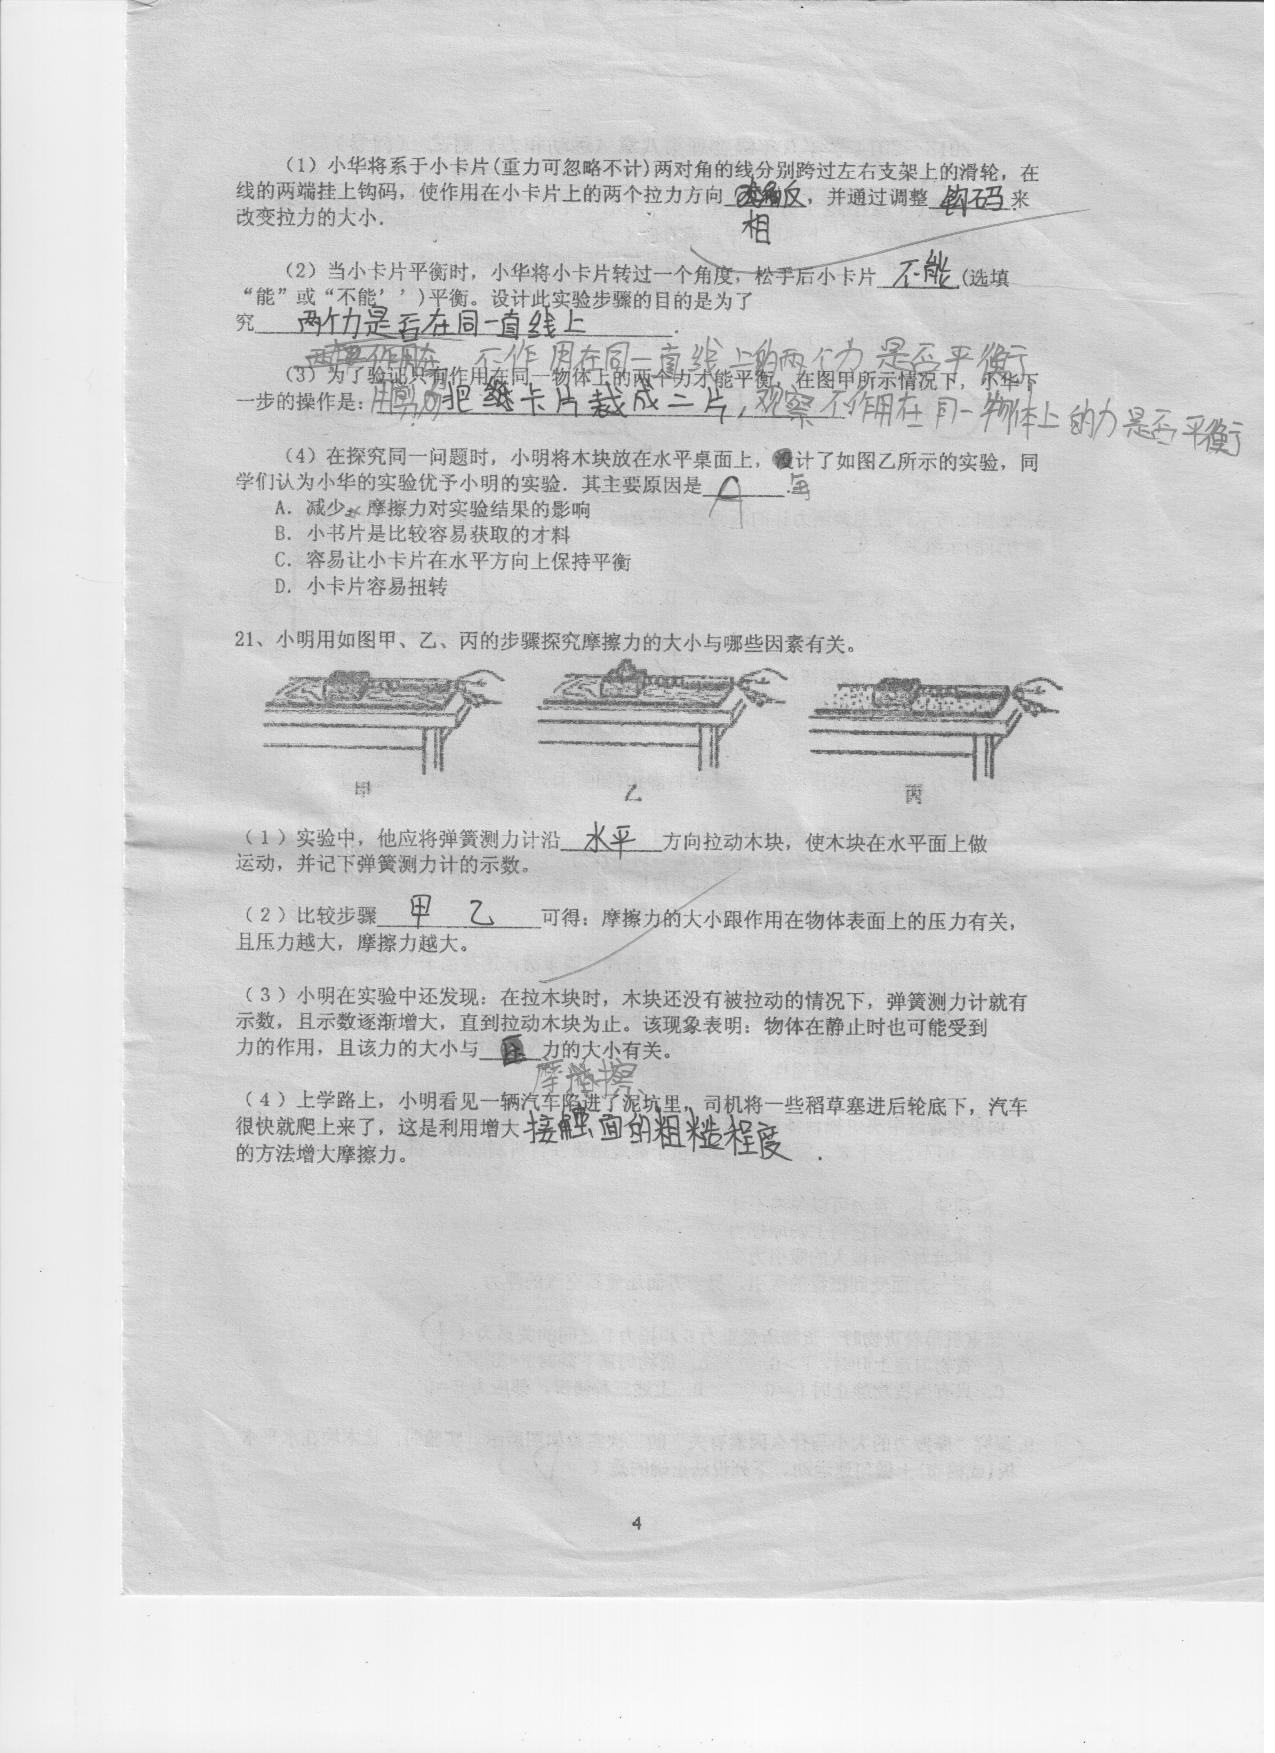 (1)小华将系于小卡片(重力可忽略不计)两对角的线分别跨过左右支架上的滑轮，在
线的两端挂上钩码，使作用在小卡片上的两个拉力方向 反，并通过调整 钩码 来
改变拉力的大小.
相
(2)当小卡片平衡时，小华将小卡片转过一个角度，松手后小卡片 不能 (选填
“能”或“不能’’)平衡。设计此实验步骤的目的是为了
究 两个力是否在同一直线上 .
不作用在同一直线上的两个力是否平衡
(3)为了验证只有作用在同一物体上的两个力才能平衡，在图甲所示情况下，小华下
一步的操作是: 用剪刀把 卡片裁成二片，观察不作用在同一物体上的力是否平衡
(4)在探究同一问题时，小明将木块放在水平桌面上，设计了如图乙所示的实验，同
学们认为小华的实验优予小明的实验．其主要原因是 A .
A．减少 摩擦力对实验结果的影响
B．小书片是比较容易获取的才料
C．容易让小卡片在水平方向上保持平衡
D．小卡片容易扭转
21、小明用如图甲、乙、丙的步骤探究摩擦力的大小与哪些因素有关。
甲 乙 丙
(1)实验中，他应将弹簧测力计沿 水平 方向拉动木块，使木块在水平面上做
运动，并记下弹簧测力计的示数。
(2)比较步骤 甲 乙 可得：摩擦力的大小跟作用在物体表面上的压力有关，
且压力越大，摩擦力越大。
(3)小明在实验中还发现：在拉木块时，木块还没有被拉动的情况下，弹簧测力计就有
示数，且示数逐渐增大，直到拉动木块为止。该现象表明：物体在静止时也可能受到
力的作用，且该力的大小与 力的大小有关。
摩 擦
(4)上学路上，小明看见一辆汽车陷进了泥坑里，司机将一些稻草塞进后轮底下，汽车
很快就爬上来了，这是利用增大 接触面的粗糙程度 .
的方法增大摩擦力。
4